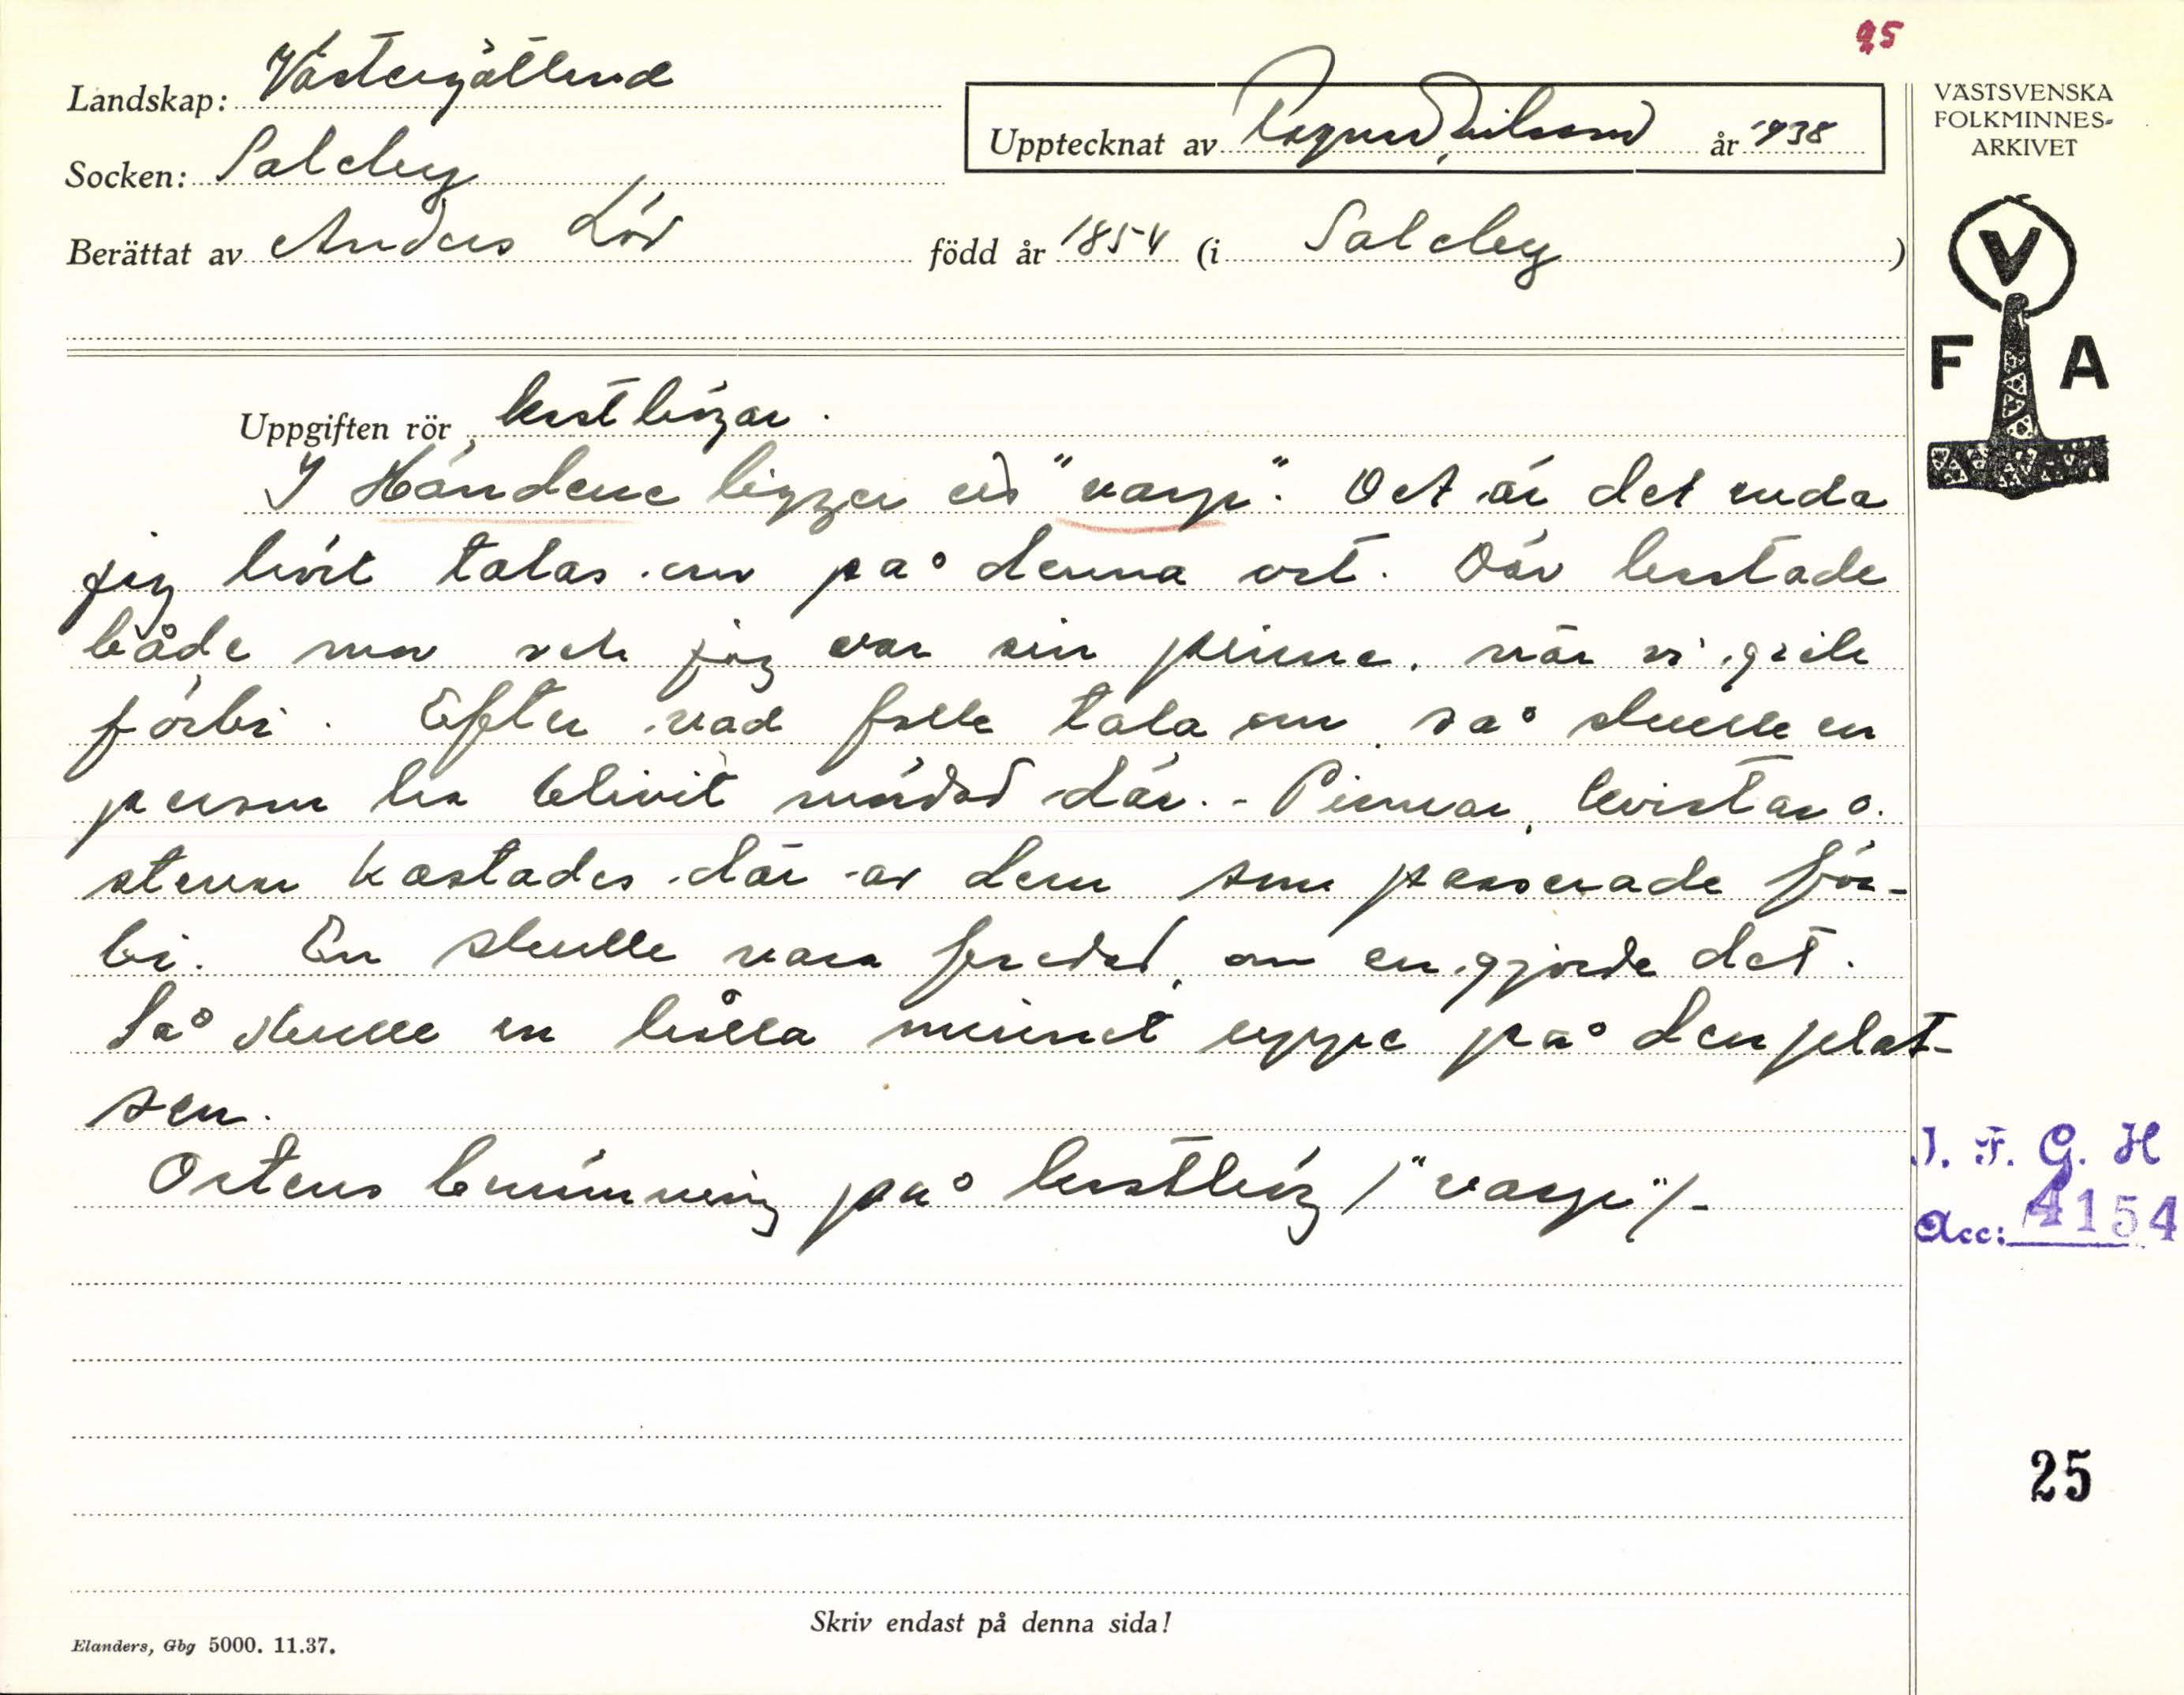 25
Landskap: Västergötland
Upptecknat av Ragnar Nilsson år 1938
Socken: Saleby
Berättat av Anders Löv född år 1854 (i Saleby)
VÄSTSVENSKA
FOLKMINNES-
ARKIVET
V
F A
Uppgiften rör kasthögar.
I Händene ligger ett "varp". Det är det enda
jag hört talas om på denna ort. Där kastade
både mor och jag var sin pinne, när vi gick
förbi. Efter vad folk tala om, så skulle en
person ha blivit mördad där. - Pinnar, kvistar o.
stenar kastades där av dem som passerade för-
bi. En skulle vara fredad, om en gjorde det.
Så skulle en hålla minnet uppe på den plat-
sen.
Ortens benämning på kasthög /"varp"/-
I. F. G. H
Acc: 4154
25
Skriv endast på denna sida!
Elanders, Gbg 5000. 11.37.